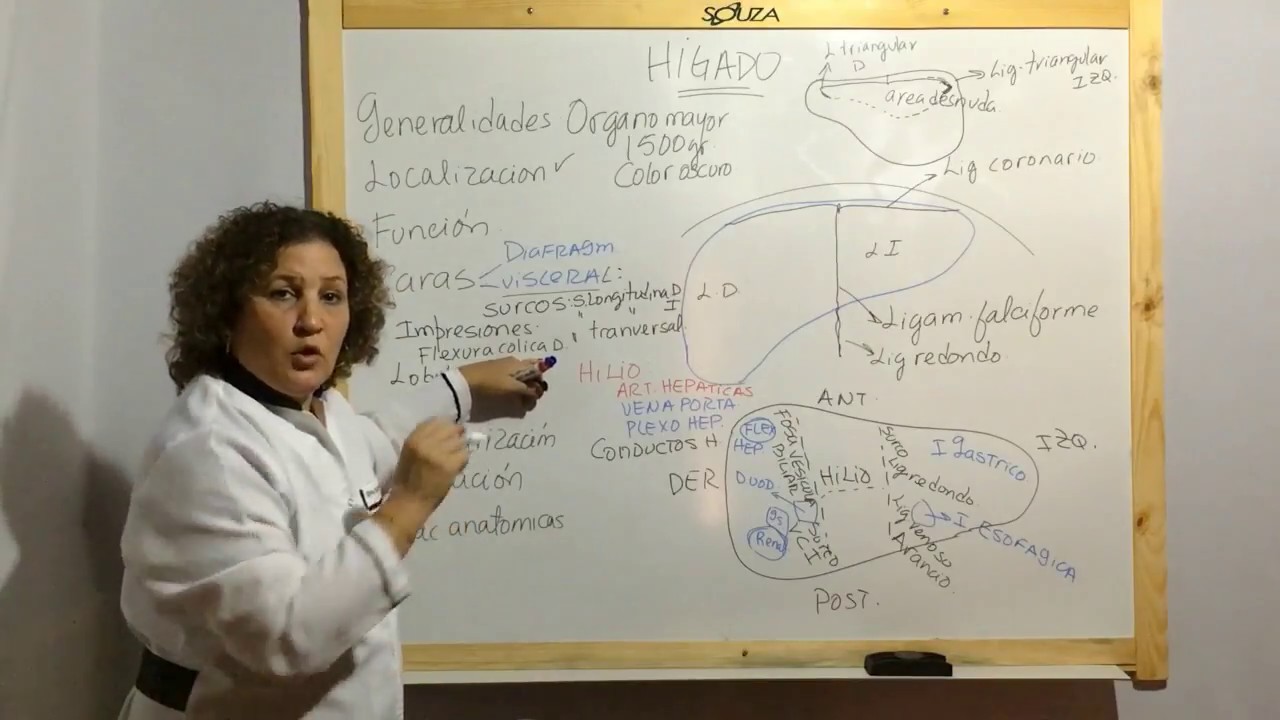 SOUZA
HIGADO
Generalidades Organo mayor
1500gr.
Localizacion ✓ Color oscuro
Función
Caras DIAFRAGM
VISCERAL:
SURCOS: S. Longitudina D
" " I
" tranversal
Impresiones:
Flexura colica D.
HILIO
ART. HEPATICAS
VENA PORTA
PLEXO HEP.
CONDUCTOS H
ac anatomicas
L triangular
D
Lig. triangular
IZQ.
area desnuda
Lig coronario
L.D
L I
Ligam. falciforme
Lig redondo
ANT.
IZQ.
DER
POST.
FLEX
HEP
DUOD
gs
Renal
FOSA VESICULA
BILIAR
Surco
V C I
HILIO
Surco
Lig redondo
Lig venoso
Arancio
I gastrico
I ESOFAGICA